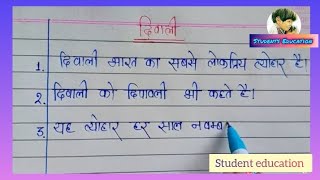 दिवाली
STUDENTS EDUCATION
1. दिवाली भारत का सबसे लोकप्रिय त्योहार है।
2. दिवाली को दिपावली भी कहते है।
3. यह त्योहार हर साल नवम्ब
Student education